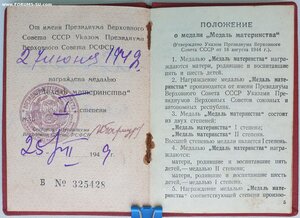 www.FORUMS-SU.com
От имени Президиума Верховного
Совета СССР Указом Президиума
Верховного Совета РСФСР
2 июня 1949г.
награждена медалью
„Медаль материнства"
I
степени
25 VII 1949 г.
Б № 325428
ПОЛОЖЕНИЕ
о медали „Медаль материнства"
(Утверждено Указом Президиума Верховного
Совета СССР от 18 августа 1944 г.).
1. Медалью „Медаль материнства" награждаются
матери, родившие и воспитавшие
пять и шесть детей.
2. Награждение медалью „Медаль материнства"
производится от имени Президиума
Верховного Совета СССР Указами Президиумов
Верховных Советов союзных и
автономных республик.
3. Медаль „Медаль материнства" состоит
из двух степеней:
„Медаль материнства" I степени
„Медаль материнства" II степени.
Высшей степенью медали является I степень.
4. Медалью „Медаль материнства" награждаются:
матери, родившие и воспитавшие пять
детей,—медалью II степени;
матери, родившие и воспитавшие шесть
детей,—медалью I степени.
5